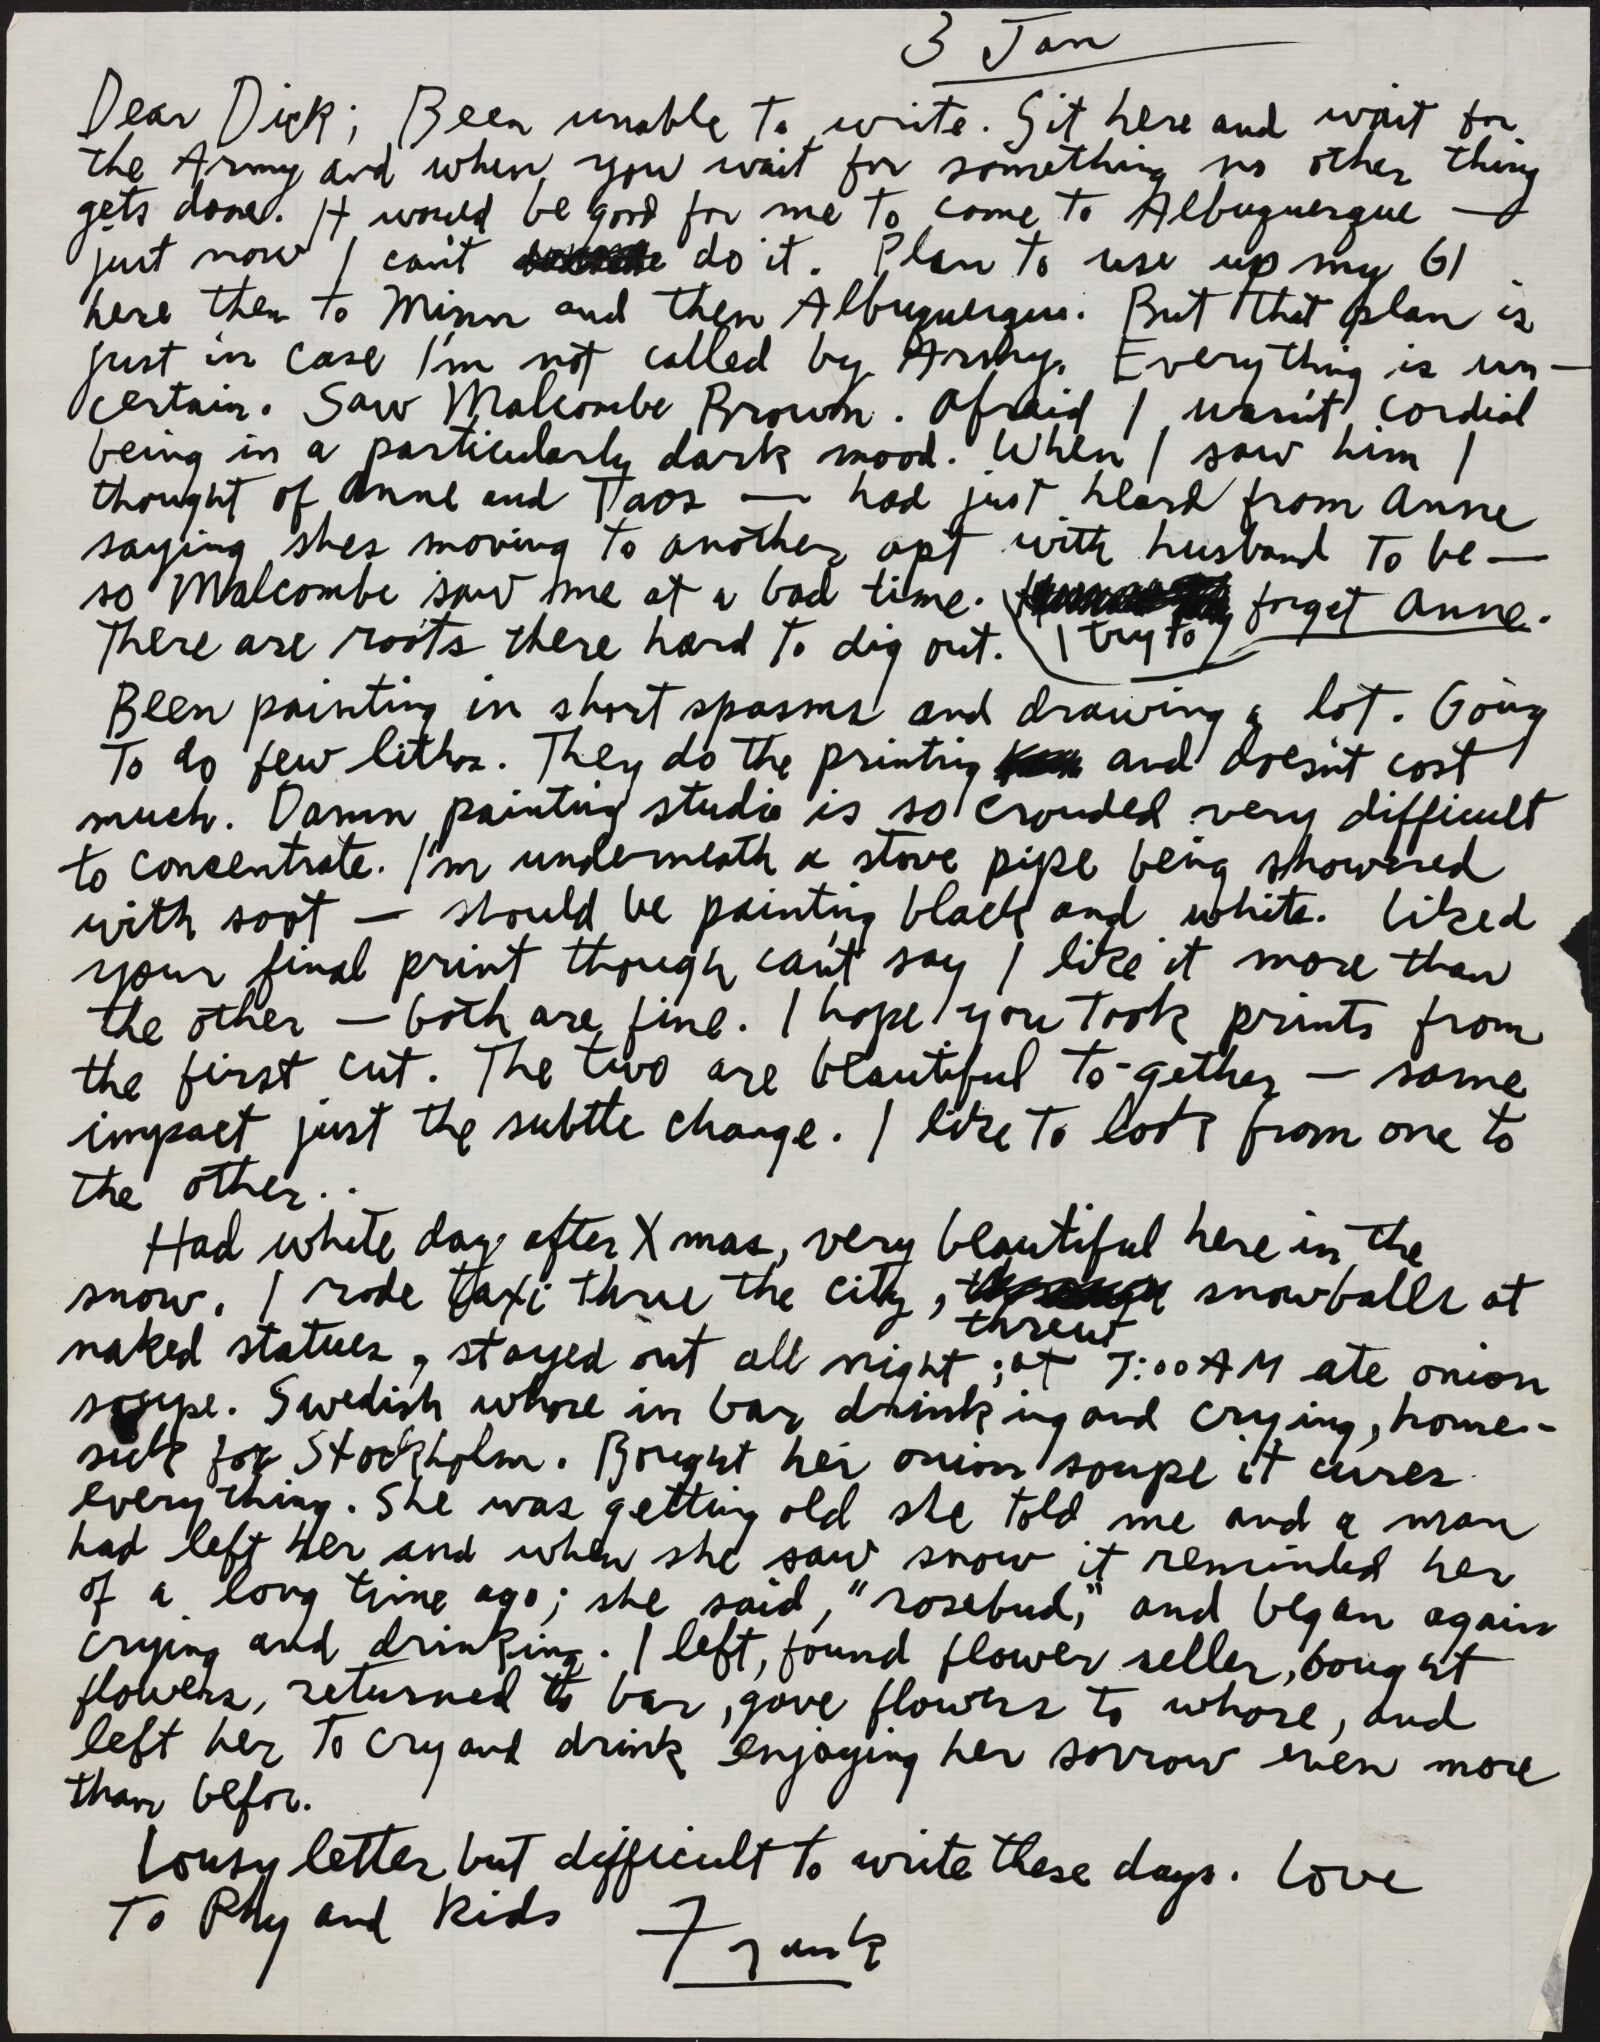 3 Jan
Dear Dick; Been unable to write. Sit here and wait for
the Army and when you wait for something no other thing
gets done. It would be good for me to come to Albuquerque —
just now I can't do it. Plan to use up my GI
here then to Minn and then Albuquerque. But that plan is
just in case I'm not called by Army. Everything is un-
certain. Saw Malcombe Brown. Afraid I wasn't cordial
being in a particularly dark mood. When I saw him I
thought of Anne and Taos — had just heard from Anne
saying shes moving to another apt with husband to be —
so Malcombe saw me at a bad time. forget Anne.
There are roots there hard to dig out. (I try to)
Been painting in short spasms and drawing a lot. Going
to do few lithos. They do the printing and doesn't cost
much. Damn painting studio is so crouded very difficult
to concentrate. I'm underneath a stove pipe being showered
with soot — should be painting black and white. Liked
your final print though can't say I like it more than
the other — both are fine. I hope you took prints from
the first cut. The two are beautiful to-gether — same
impact just the subtle change. I like to look from one to
the other..
Had white day after Xmas, very beautiful here in the
snow. I rode taxi thrue the city, snowballs at
threw
naked statues, stayed out all night; at 7:00 AM ate onion
soupe. Swedish whore in bar drinking and crying, home-
sick for Stockholm. Bought her onion soupe it cures
everything. She was getting old she told me and a man
had left her and when she saw snow it reminded her
of a long time ago; she said, "rosebud," and began again
crying and drinking. I left, found flower seller, bought
flowers, returned to bar, gave flowers to whore, and
left her to cry and drink enjoying her sorrow even more
than befor.
Lousy letter but difficult to write these days. Love
to Phy and kids
Frank